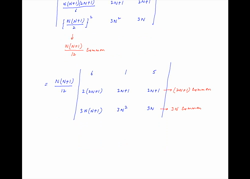 N(N+1)(2N+1)/6 2N+1 2N+1
[N(N+1)/2]² 3N² 3N
N(N+1)/12 Common
= N(N+1)/12 | 6 1 5 |
2(2N+1) 2N+1 2N+1 → (2N+1) Common
3N(N+1) 3N² 3N → 3N Common